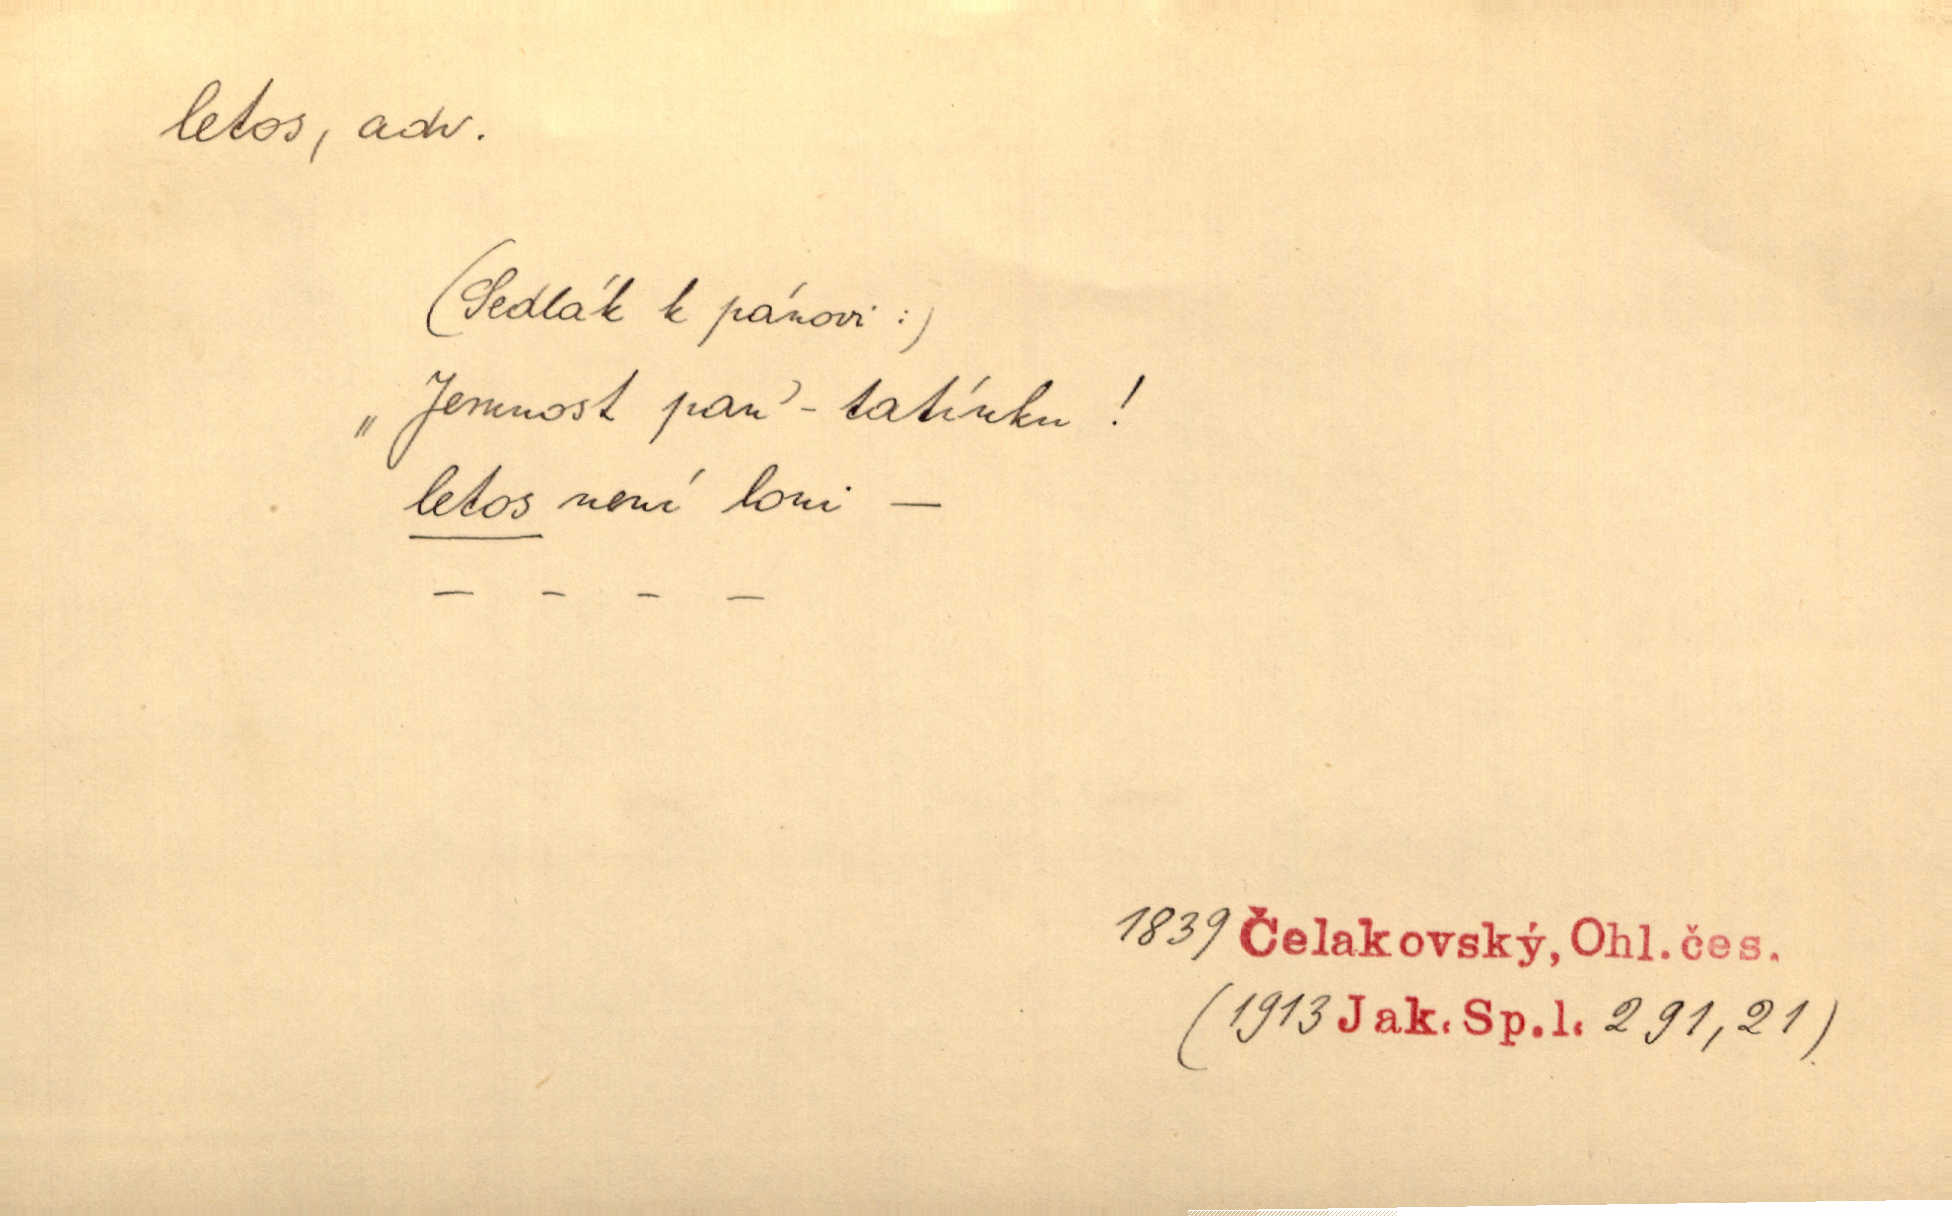 letos, adv.
(Sedlák k pánovi:)
„Jemnost pan'-tatínku!
letos není loni —
– – – –
1839 Čelakovský, Ohl. čes.
(1913 Jak. Sp. l. 291,21)